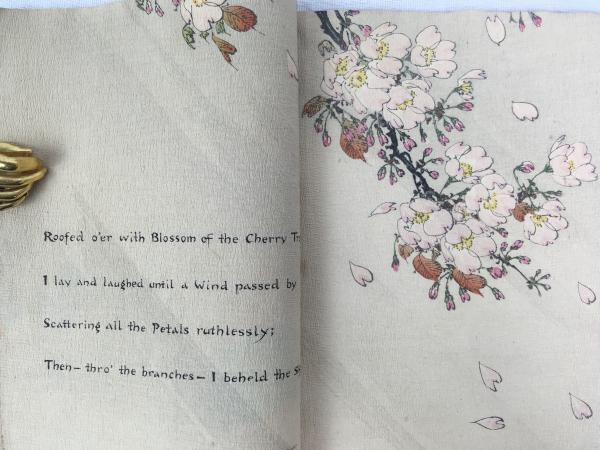 Roofed o'er with Blossom of the Cherry
I lay and laughed until a Wind passed by
Scattering all the Petals ruthlessly;
Then– thro' the branches– I beheld the